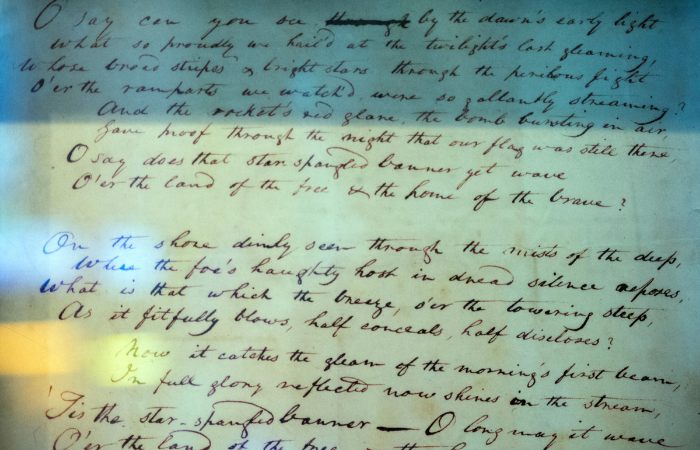 O say can you see through by the dawn's early light
What so proudly we hail'd at the twilight's last gleaming,
Whose broad stripes & bright stars through the perilous fight
O'er the ramparts we watch'd, were so gallantly streaming?
And the rocket's red glare, the bomb bursting in air,
Gave proof through the night that our flag was still there,
O say does that star-spangled banner yet wave
O'er the land of the free & the home of the brave?
On the shore dimly seen through the mists of the deep,
Where the foe's haughty host in dread silence reposes,
What is that which the breeze, o'er the towering steep,
As it fitfully blows, half conceals, half discloses?
Now it catches the gleam of the morning's first beam,
In full glory reflected now shines in the stream,
'Tis the star-spangled banner — O long may it wave
O'er the land of the free